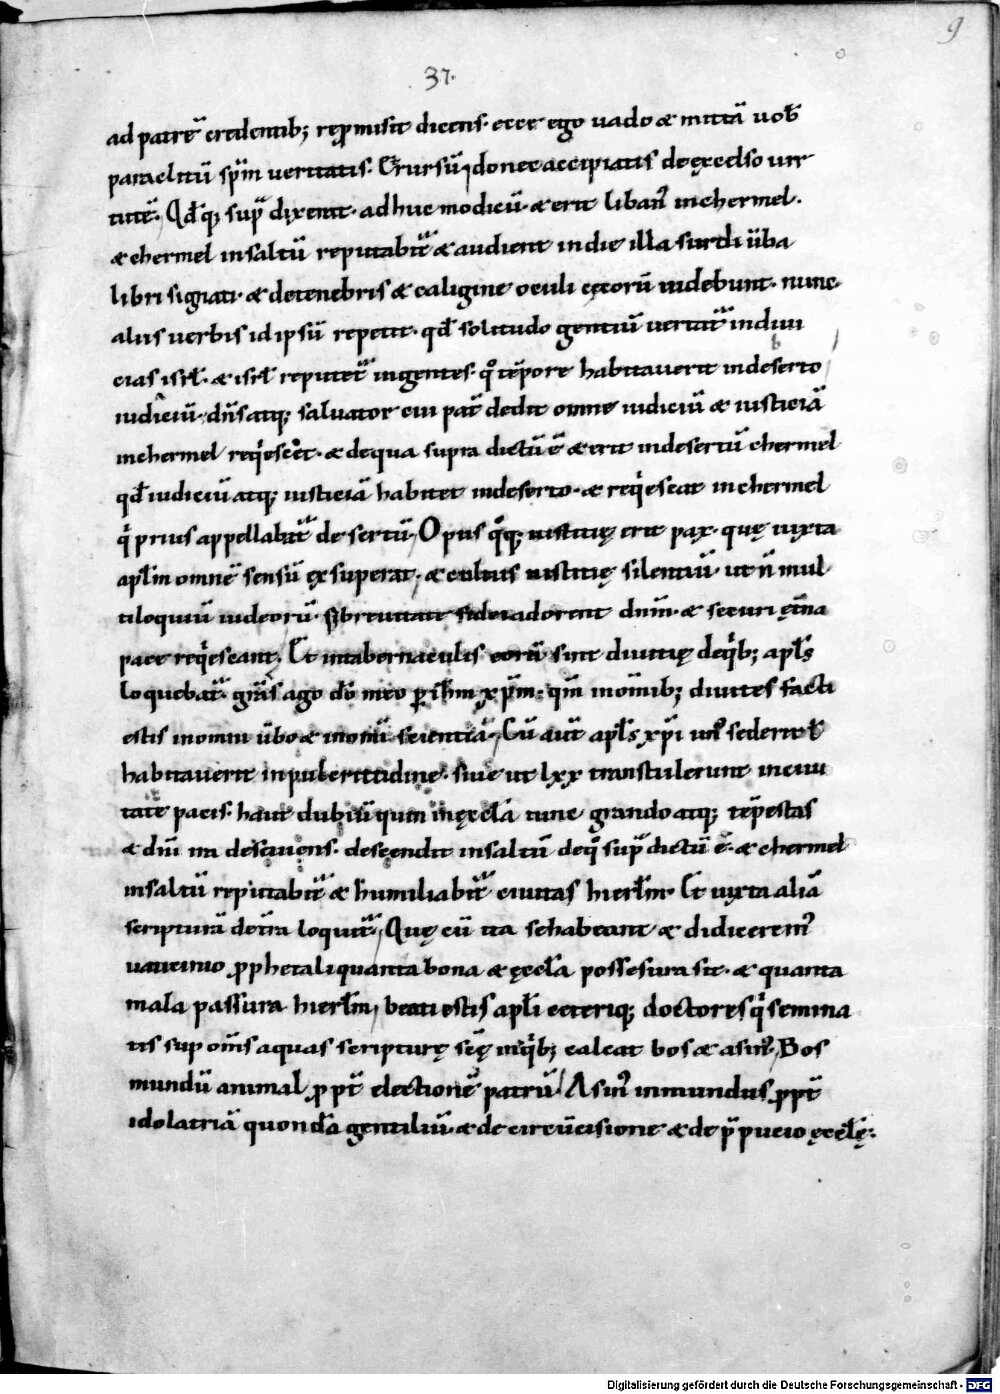 9
37.
ad patrē credentib; rep̄misit dicens· ecce ego uado & mittā uob̄
paraclitū sp̄m ueritatis· Et rursū donec accipiatis de excelso uir
tutē· Qd̄q; sup̄ dixerat· adhuc modicū· & erit liban' in chermel·
& chermel in saltū reputabit̄ & audient in die illa surdi ūba
libri signati· & de tenebris & caligine oculi cęcorū uidebunt· nunc
aliis uerbis id ipsū repetit· qd̄ solitudo gentiū uertat̄ in diui
cias isrł· & isrł reputet̄ in gentes· q° tēpore habitauerit in deserto
iudiciū· dn̄s atq; saluator cui pat̄ dedit omne iudiciū & iusticiā
in chermel reqescet· & de qua supra dictū ē & erit in desertū chermel
qd̄ iudiciū atq; iusticiā habitet in deserto· & reqescat in chermel
q prius appellabat̄ desertū· Opus qq; iustitię erit pax· quę iuxta
apłm omnē sensū exsuperat· & cultus iustitię silentiū· ut n̄ mul
tiloquiū iudeorū· s; breuitate fidei adorent dn̄m· & securi ęt̄na
pace reqescant· Et in tabernaculis eorū sint diuitię de qb; apłs
loquebat̄· gr̄as ago dō meo p ih̄m xp̄m· qm̄ in om̄ib; diuites facti
estis in omni ūbo & in omni scientiā· Cū aut̄ apłs xp̄i un' sederit ł
habitauerit in pulcritudine· siue ut lxx transtulerunt in ciui
tate pacis· haut dubiū quin in ęccła tunc grando atq; tēpestas
& dn̄i ira deseuiens· descendit in saltū de q sup̄ dictū ē· & chermel
in saltū reputabit̄ & humiliabit̄ ciuitas hierłm· Et iuxta aliā
scripturā de t̄ra loquit̄· Quę cū ita se habeant & didicerem'
uaticinio pphetali quanta bona & ęccła possesura sit· & quanta
mala passura hierłm· beati estis apłi ceteriq; doctores q semina
tis sup om̄s aquas scripturę scę in qb; calcat bos & asin'· Bos
mundū animal p pt̄ electionē patrū· Asin' inmundus p pt̄
idolatriā quondā gentiliū· & de circūcisione & de p̄pucio ęccłę·
Digitalisierung gefördert durch die Deutsche Forschungsgemeinschaft - DFG